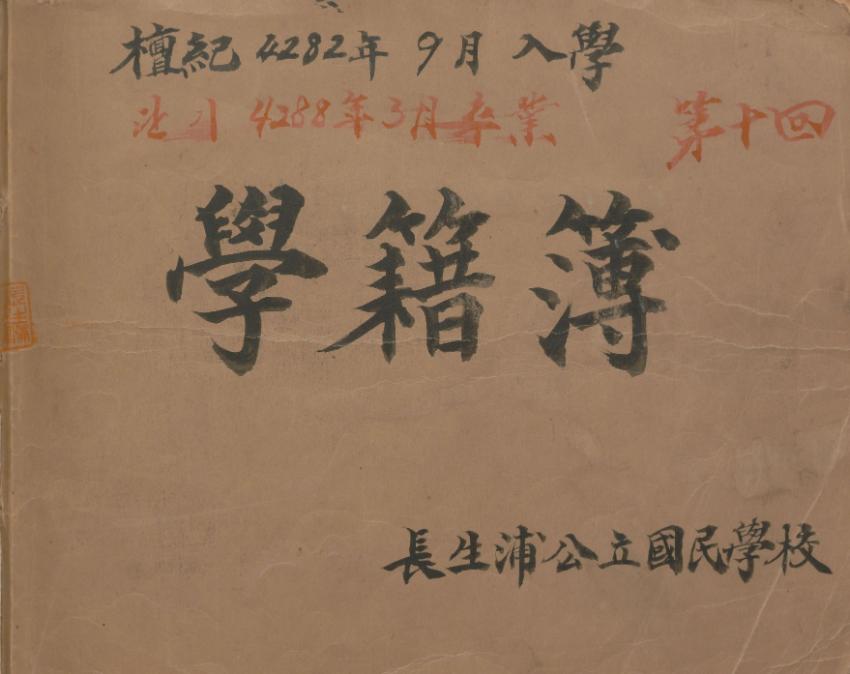 檀紀 4282年 9月 入學
4288年3月卒業 第十回
學籍簿
長生浦公立國民學校